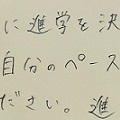 に進学を決
自分のペース
ださい。進